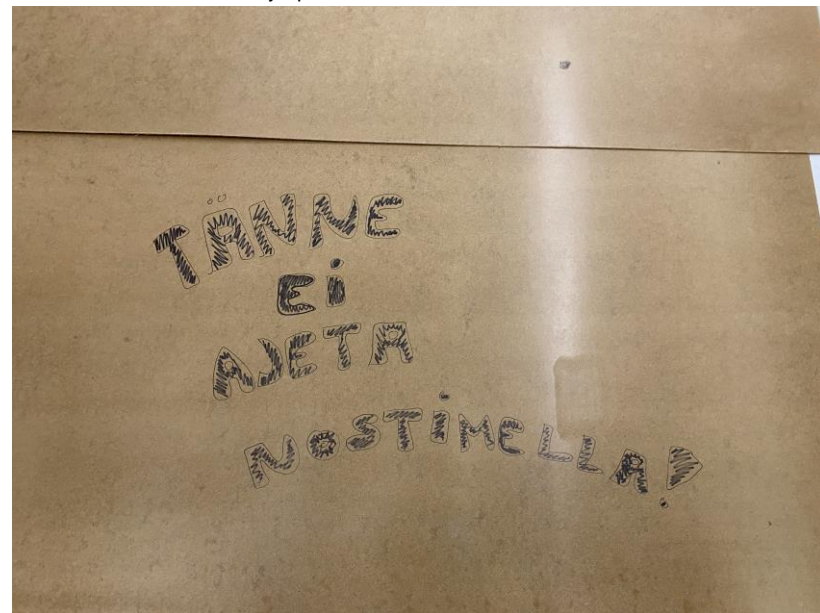 TÄNNE
Ei
AJETA
NOSTiMELLA!